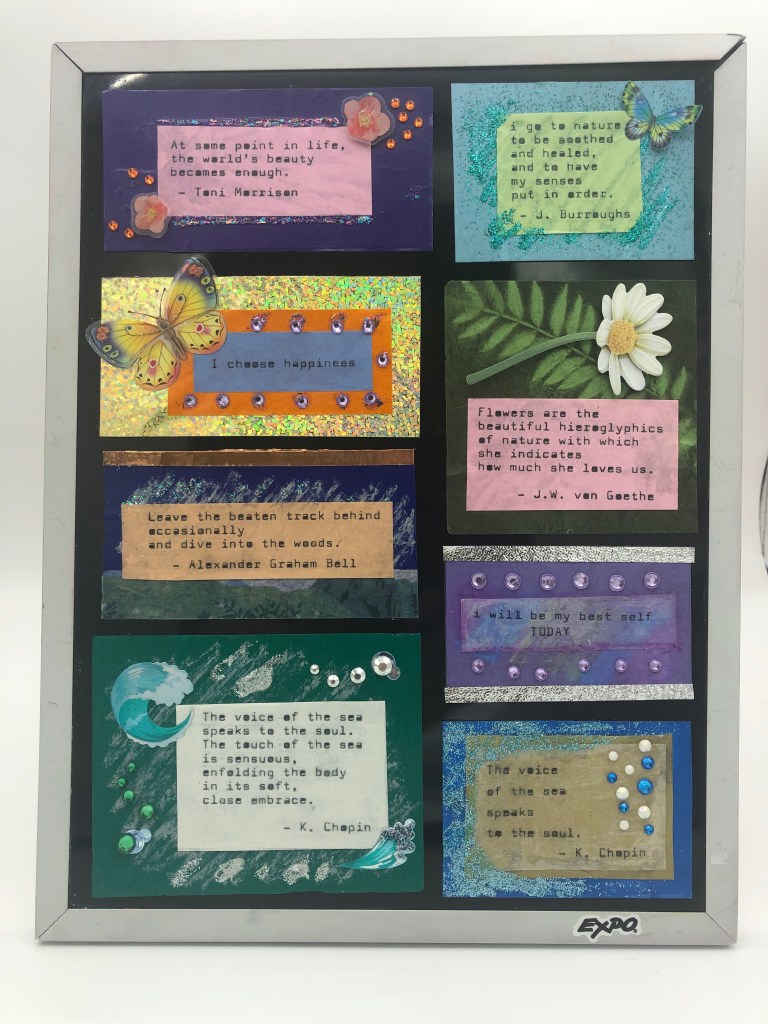 At some point in life,
the world's beauty
becomes enough.
- Toni Morrison
i go to nature
to be soothed
and healed,
and to have
my senses
put in order.
- J. Burroughs
I choose happiness
Flowers are the
beautiful hieroglyphics
of nature with which
she indicates
how much she loves us.
- J.W. von Goethe
Leave the beaten track behind
occasionally
and dive into the woods.
- Alexander Graham Bell
i will be my best self
TODAY
The voice of the sea
speaks to the soul.
The touch of the sea
is sensuous,
enfolding the body
in its soft,
close embrace.
- K. Chopin
The voice
of the sea
speaks
to the soul.
- K. Chopin
EXPO